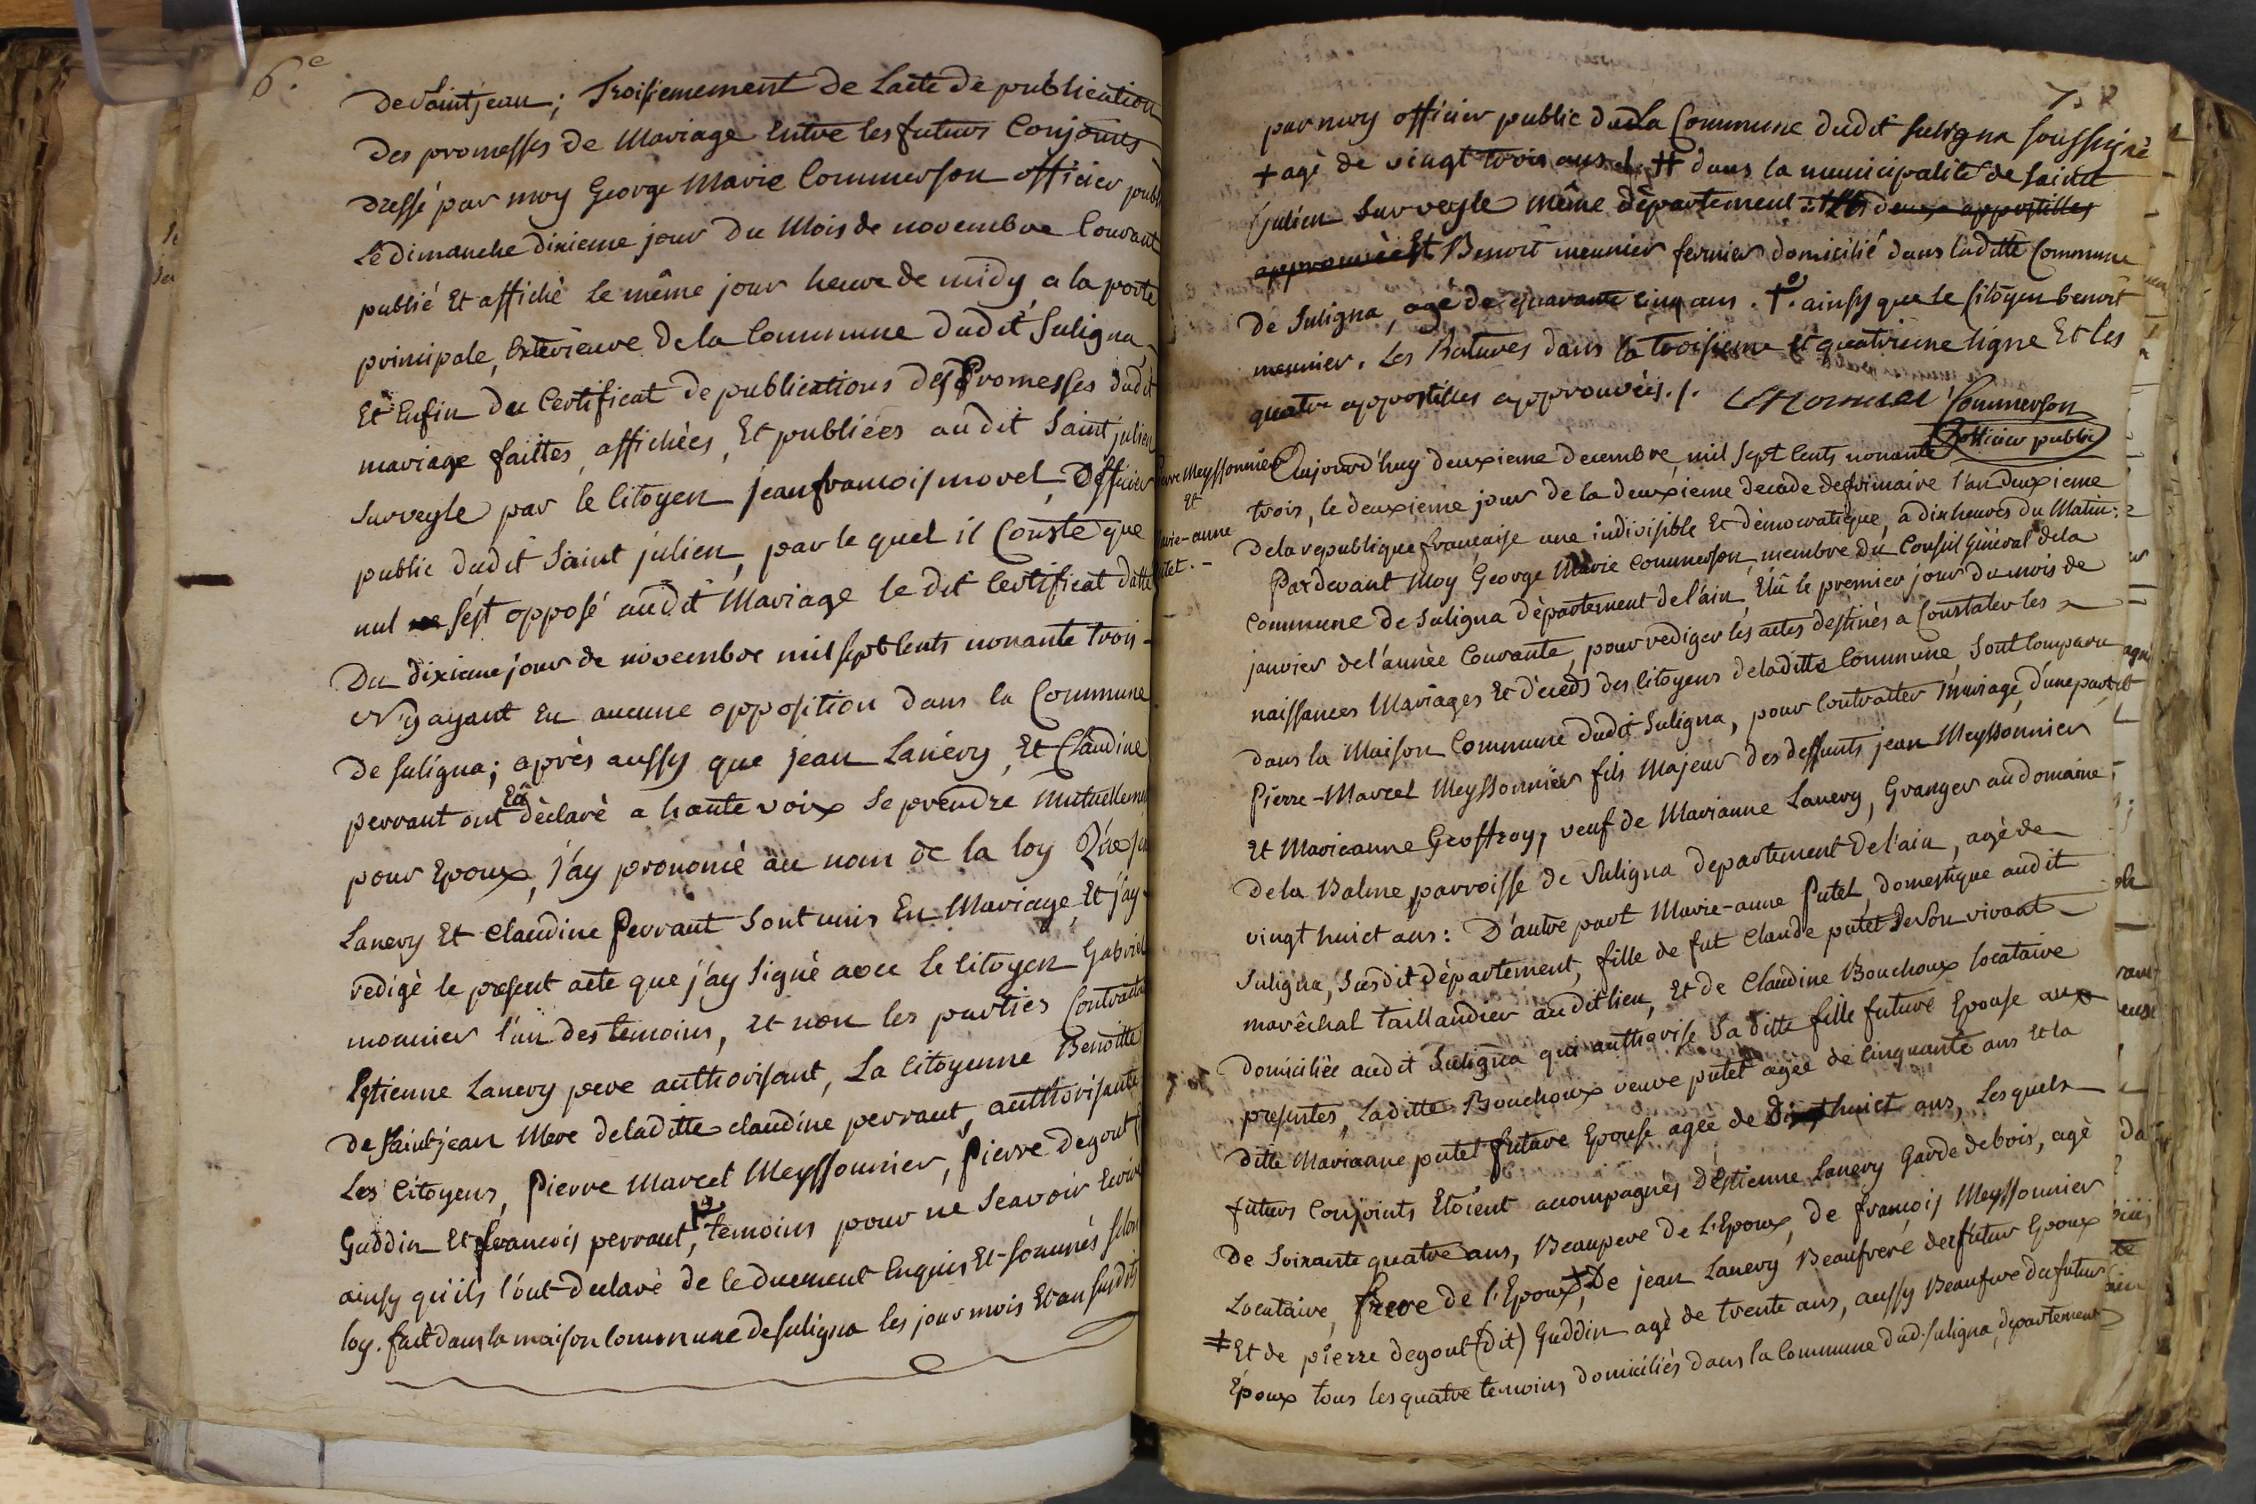 6.e
de Saint jean; Troisiemement de Lacte de publication
des promesses de Mariage Entre les futurs Conjoints
dressé par moy George Marie Commerson officier publ
Le dimanche dixieme jour du Mois de novembre Courant
publié Et affiché le même jour heure de midy a la porte
principale, Extèrieure de la Commune dudit Suligna
Et Enfin du Certificat de publications des Promesses dudit
mariage faittes, affichèes, Et publiées audit Saint julien
Sur veyle par le Citoyen jean francois morel, Officier
public dudit Saint julien, par le quel il Conste que
nul ne s'est opposé audit Mariage le dit Certificat datté
Du dixieme jour de novembre mil sept Cents nonante trois -
N'y ayant Eu aucune opposition dans la Commune
de Suligna; après aussy que jean Lanéry, Et Claudine
perraut ont Eû dèclaré a haute voix Se prendre Mutuellement
pour Epoux, j'ay prononcé au nom de la loy Que jean
Lanery Et Claudine Perraut Sont unis En Mariage, Et j'ay
redigè le present acte que j'ay Signé avec le Citoyen Gabriel
monnier l'un des temoins, Et non les parties Contractantes
Estienne Lanery pere authorisant, La Citoyenne Benoitte
de Saint jean Mere de laditte claudine perraut, authorisante
Les Citoyens, Pierre Marcel Meyssonnier, Pierre degout
Guddin Et francois perraut, temoins pour ne Scavoir Ecrire
ainsy qu'ils l'ont declaré de le duement Enquis Et Sommés Selon
loy. fait dans la maison Commune de Suligna les jour mois Et an Susdits
7.
par moy officier public de la Commune dudit Suligna Soussigné
+ agè de vingt trois ans ‡ dans la municipalité de Saint
julien Sur veyle même département : Les deux appostilles
approuvèes Et Benoit meunier fermier domicilié dans laditte Commune
de Suligna, agé de quarante cinq ans. ainsy que le Citoyen benoit
meunier. Les Ratures dans la troisieme et quatrieme ligne Et les
quatre appostilles approuvèes./. Commerson
officier public
Meyssonnier
Et
Marie-anne
Putet. -
Aujourd'huy deuxieme decembre, mil Sept Cents nonante
trois, le deuxieme jour de la deuxieme decade defrimaire l'an deuxieme
de la republique francaise une indivisible Et dèmocratique, a dix heures du Matin:
Pardevant Moy George Marie Commerson, membre du Conseil Gèneral de la
Commune de Suligna département de l'ain, Elû le premier jour du mois de
janvier de l'annèe Courante, pour rediger les actes destinès a Constater les
naissances Mariages Et décèds des Citoyens de laditte Commune, Sont Comparu
dans la Maison Commune dudit Suligna, pour Contracter Mariage, d'une part
Pierre-Marcel Meyssonnier fils Majeur des deffunts jean Meyssonnier
Et Marieanne Geoffray, veuf de Marianne Lanery, Granger au domaine
de la Balme parroisse de Suligna departement de l'ain, agè de
vingt huict ans: D'autre part Marie-anne Putet, domestique audit
Suligna, Susdit département, fille de fut Claude putet de Son vivant
marêchal taillandier audit lieu, Et de Claudine Bouchoux locataire
domiciliée audit Suligna qui authorise Sa ditte fille future Epouse aux
presentes, Laditte Bouchoux veuve putet agèe de Cinquante ans Et la
ditte Marianne putet future Epouse agèe de Dix huict ans, Lesquels
futurs Conjoints Etoient accompagnés d'Estienne Lanery Garde de bois, agè
de Soixante quatre ans, Beaupere de l'Epoux, de francois Meyssonnier
Locataire, frere de l'Epoux, de jean Lanery Beaufrere de futur Epoux
‡ Et de pierre degout (dit) Guddin agè de trente ans, aussy Beaufrere du futur
Epoux tous les quatre temoins domiciliés dans la Commune dud. Suligna, departement